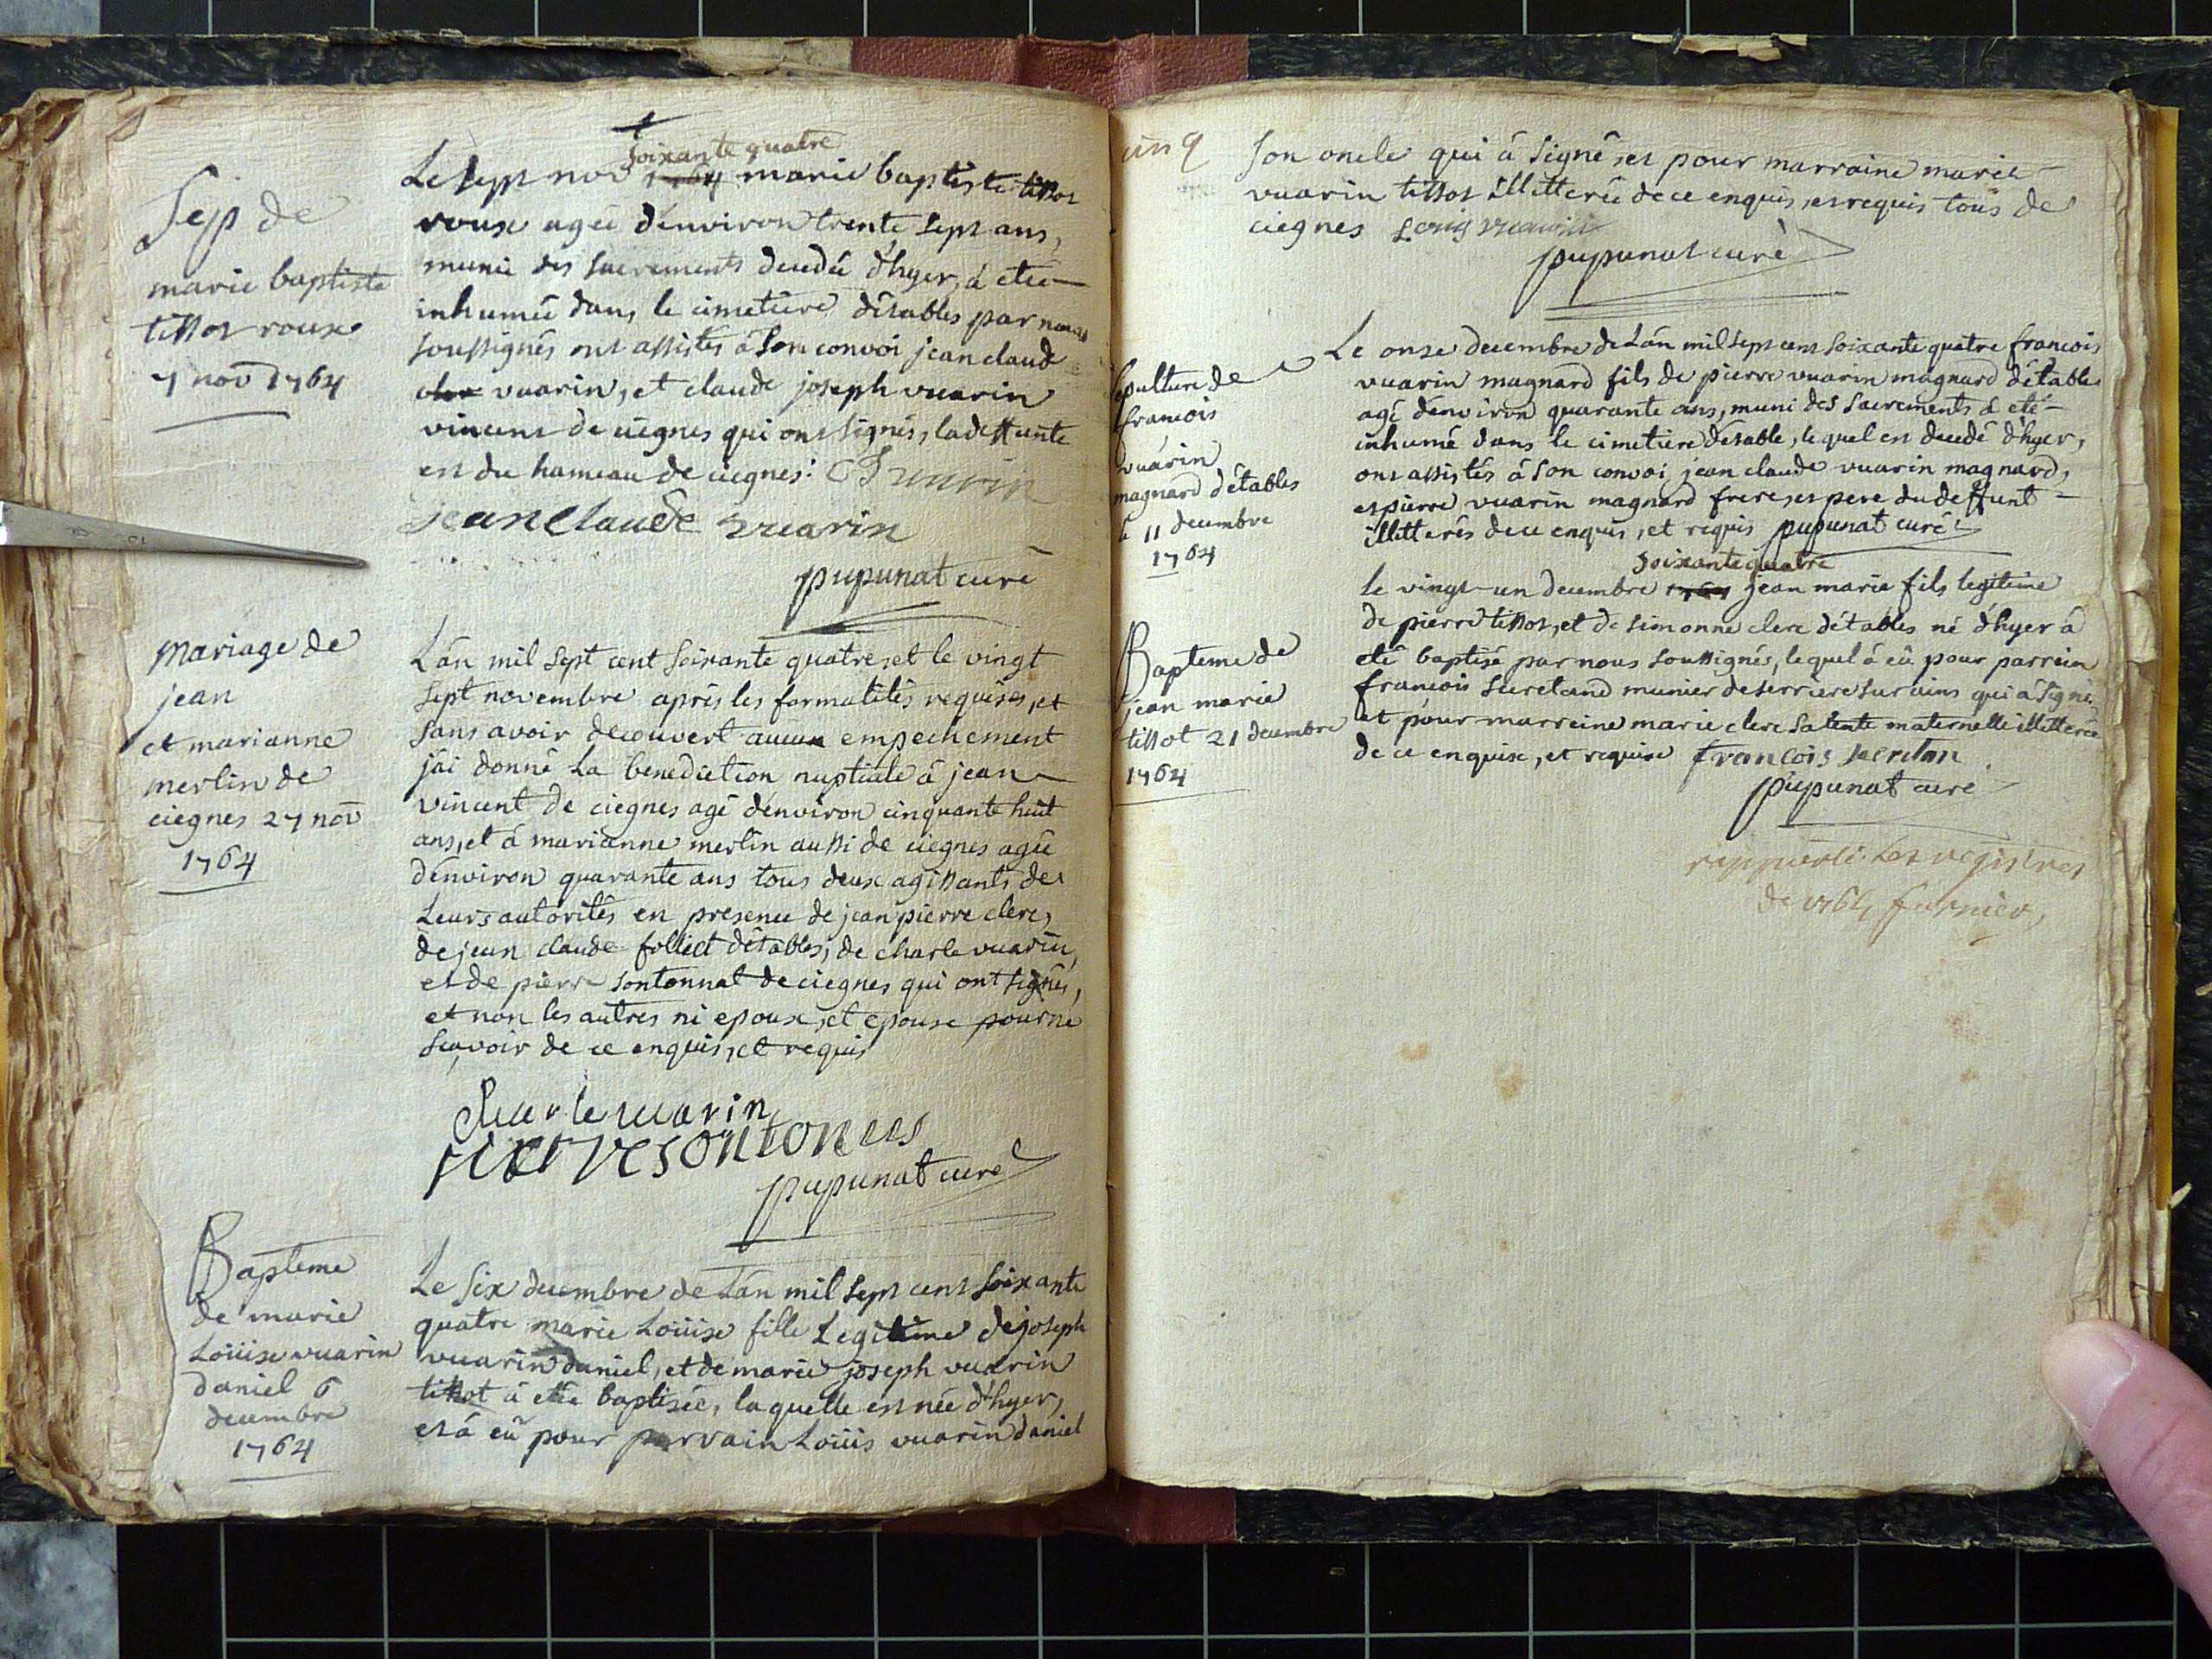 Sep de
marie baptiste
tissot roux
7 nov 1764
soixante quatre
Le sept nov 1764 marie baptiste tissot
roux agée d'environ trente sept ans,
munie des sacrements decedée d'hyer, à etée
inhumée dans le cimetiere d'étables par nous
soussignés ont assistés à son convoi jean claude
vuarin, et claude joseph vuarin
vincent de ciegnes qui ont signés, la deffunte
est du hameau de ciegnes:
jean claude vuarin
pupunat curé
Mariage de
jean
et marianne
merlin de
ciegnes 27 nov
1764
L'an mil sept cent soixante quatre, et le vingt
sept novembre après les formalités requises, et
sans avoir decouvert aucun empechement
j'ai donné la benediction nuptiale à jean
vincent de ciegnes agé d'environ cinquante huit
ans, et à marianne merlin aussi de ciegnes agée
d'environ quarante ans tous deux agissants de
leurs autorités en presence de jean pierre clerc,
de jean claude folliet d'étables, de charle vuarin,
et de pierre sontonnat de ciegnes qui ont signés,
et non les autres ni epoux, et epouse pour ne
sçavoir de ce enquis, et requis
Charle vuarin
pupunat curé
Bapteme
de marie
Loüise vuarin
daniel 6
decembre
1764
Le six decembre de l'an mil sept cent soixante
quatre marie Loüise fille Legitime de joseph
vuarin daniel, et de marie joseph vuarin
tissot à etée baptisée, laquelle est née d'hyer,
et à eû pour parrain Loüis vuarin daniel
son oncle qui à signé, et pour marraine marie
vuarin tissot illitterée de ce enquis, et requis tous de
ciegnes Louis vuarin
pupunat curé
sepulture de
francois
vuarin
magnard d'étables
le 11 decembre
1764
Le onze decembre de l'an mil sept cent soixante quatre francois
vuarin magnard fils de pierre vuarin magnard d'étables
agé d'environ quarante ans, muni des sacrements à eté
inhumé dans le cimetiere d'étable, lequel est decedé d'hyer,
ont assistés à son convoi jean claude vuarin magnard,
et pierre vuarin magnard frere, et pere du deffunt
illitterés de ce enquis, et requis pupunat curé
soixante quatre
Bapteme de
jean marie
tissot 21 decembre
1764
le vingt-un decembre 1764 jean marie fils legitime
de pierre tissot, et de simonne clerc d'étables né d'hyer à
eté baptisé par nous soussignés, lequel à eû pour parrein
francois suretand munier de serriere sur ains qui à signé,
et pour marreine marie clerc sa tente maternelle illitterée
de ce enquise, et requise francois
pupunat curé
les registres